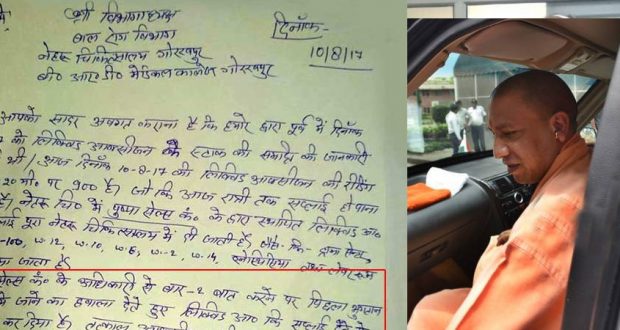 श्री विभागाध्यक्ष
बाल रोग विभाग
दिनाँक
नेहरू चिकित्सालय गोरखपुर
10/8/17
बी० आर० डी० मेडिकल कालेज गोरखपुर
आपको सादर अवगत कराना है कि हमारे द्वारा पूर्व में दिनाँक
को लिक्विड आक्सीजन के स्टाक की समाप्ति की जानकारी
थी / आज दिनाँक 10-8-17 की लिक्विड आक्सीजन की रीडिंग
20 मी० पर 900 है। जो कि आज रात्री तक सप्लाई हो पाना
है। नेहरू चि० में पुष्पा सेल्स कं० के द्वारा स्थापित लिक्विड आ०
पूरा नेहरू चिकित्सालय में दी जाती है।
-100, w-12, w-10, w-6, w-2, w-14, एनेस्थिसिया
जाता है।
सेल्स कं० के अधिकारी से बार-2 बात करने पर पिछला भुगतान
जाने का हवाला देते हुए लिक्विड आ० कि सप्लाई
कर दिया है। तत्काल